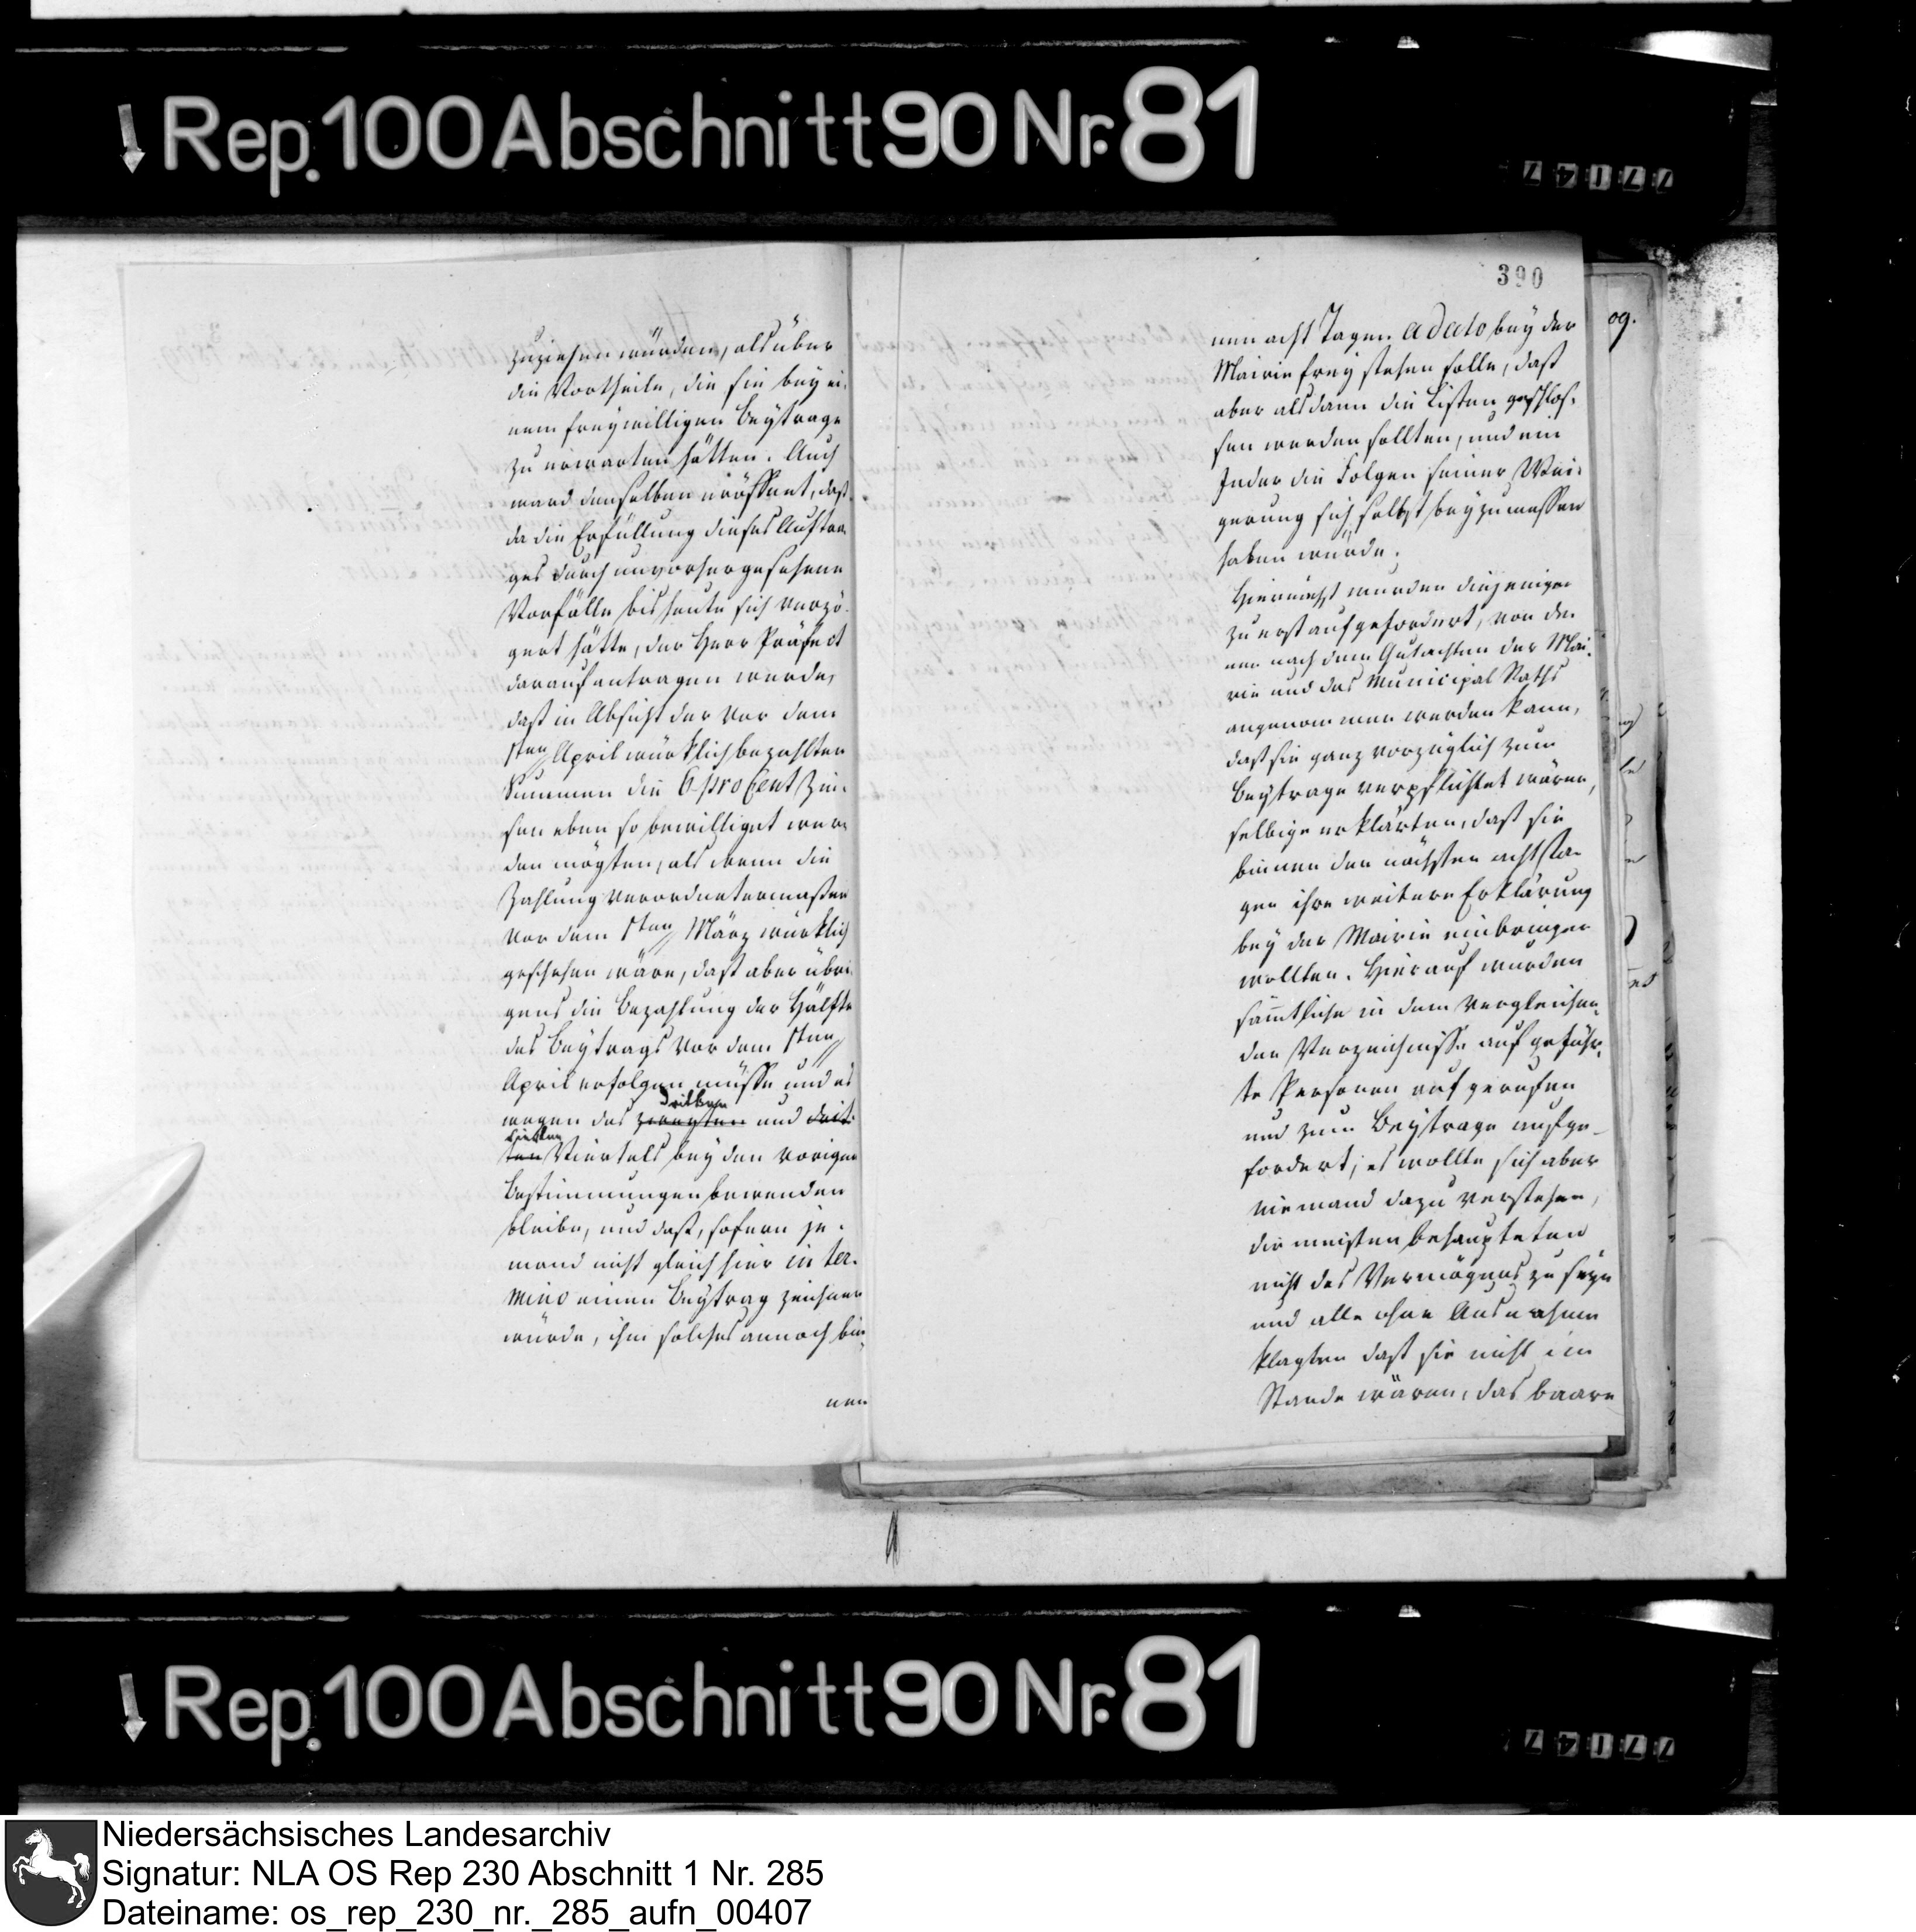 Rep. 100 Abschnitt 90 Nr. 81
zuziehen würden, als über
die Vortheile, die sie bey ei-
nem freywilligen Beytrage
zu erwarten hätten. Auch
ward denselben eröffnet, daß
da die Erfüllung dieses Auftra-
ges durch unvorhergesehene
Vorfälle bis heute sich verzö-
gert hätte, der Herr Präfect
darauf antragen werde,
daß in Absicht der vor dem
1sten April würklich bezahlten
Summen die 6 pro Cent Zin-
sen eben so bewilliget wer-
den mögten, als wenn die
Zahlung verordnetermaßen
vor dem 1sten März würklich
geschehen wäre, daß aber übri-
gens die Bezahlung der Hälfte
des Beytrags vor dem 1sten
April erfolgen müsse und es
dritten
wegen des zweyten und drit-
vierten
ten Viertels bey den vorigen
Bestimmungen bewenden
bleibe, und daß, sofern je-
mand nicht gleich hier in ter-
mino einen Beytrag zeichnen
würde, ihm solches annoch bin-
nen
390
nen acht Tagen a dato bey der
Mairie frey stehen solle, daß
aber alsdann die Listen geschlos-
sen werden sollten, und ein
Jeder die Folgen seiner Wei-
gerung sich selbst beyzumessen
haben würde.
Hiernächst wurden diejenigen
zuerst aufgefordert, von de-
nen nach dem Gutachten der Mai-
rie und des Municipal Raths
angenommen werden kann,
daß sie ganz vorzüglich zum
Beytrage verpflichtet wären,
selbige erklärten, daß sie
binnen den nächsten acht Ta-
gen ihre weitere Erklärung
bey der Mairie einbringen
wollten. Hierauf wurden
sämtliche in dem vergleichen-
den Verzeichnisse aufgeführ-
te Personen aufgerufen
und zum Beytrage aufge-
fordert; es wollte sich aber
niemand dazu verstehen,
die meisten behaupteten
nicht des Vermögens zu seyn
und alle ohne Ausnahme
klagten daß sie nicht im
Stande wären, das baare
09.
Rep. 100 Abschnitt 90 Nr. 81
Niedersächsisches Landesarchiv
Signatur: NLA OS Rep 230 Abschnitt 1 Nr. 285
Dateiname: os_rep_230_nr._285_aufn_00407